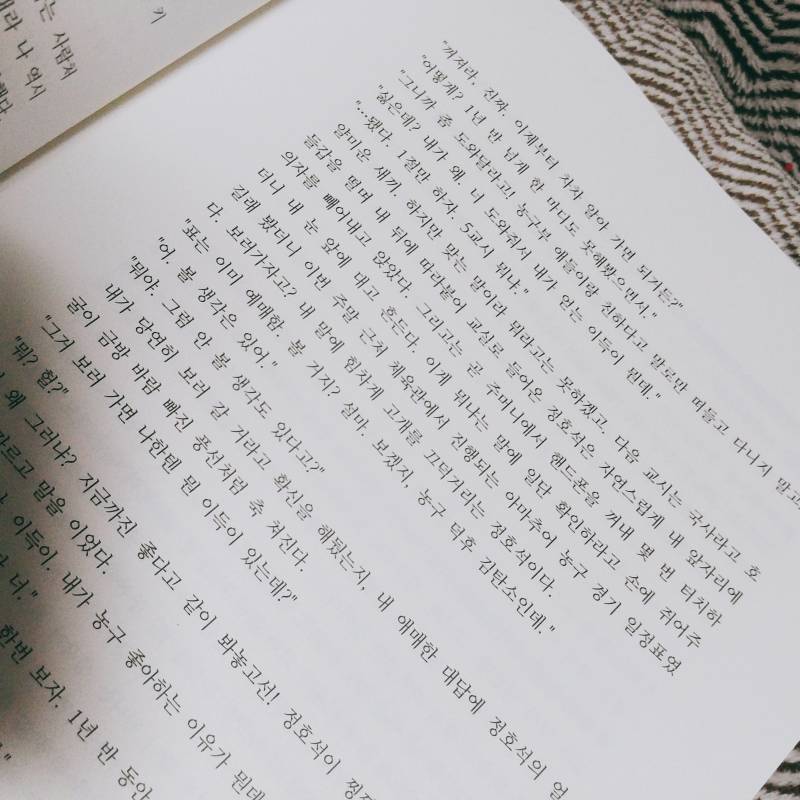 키
는 사람처
나 역시
"꺼져라, 진짜. 이제부터 차차 알아 가면 되거든?"
"어떻게? 1년 반 넘게 한 마디도 못해봤으면서."
"그니까 좀 도와달라고! 농구부 애들이랑 친하다고 말로만 떠들고 다니지 말고
"싫은데? 내가 왜. 너 도와줘서 내가 얻는 이득이 뭔데."
"...됐다. 1절만 하자. 5교시 뭐냐."
얄미운 새끼. 하지만 맞는 말이라 뭐라고는 못하겠고. 다음 교시는 국사라고 호
들갑을 떨며 내 뒤에 따라붙어 교실로 들어온 정호석은 자연스럽게 내 앞자리에
의자를 빼어내고 앉았다. 그리고는 곧 주머니에서 핸드폰을 꺼내 몇 번 터치하
더니 내 눈 앞에 대고 흔든다. 이게 뭐냐는 말에 일단 확인하라고 손에 쥐어주
길래 봤더니 이번 주말 근처 체육관에서 진행되는 아마추어 농구 경기 일정표였
다. 보러가자고? 내 말에 힘차게 고개를 끄덕거리는 정호석이다.
"표는 이미 예매함. 볼 거지? 설마. 보겠지, 농구 덕후 김탄소인데."
"어. 볼 생각은 있어."
"뭐야. 그럼 안 볼 생각도 있다고?"
내가 당연히 보러 갈 거라고 확신을 해뒀는지, 내 애매한 대답에 정호석의 얼
굴이 금방 바람 빠진 풍선처럼 축 쳐진다.
"그거 보러 가면 나한텐 뭔 이득이 있는데?"
"뭐? 헐?"
왜 그러냐? 지금까진 좋다고 같이 봐놓고선! 정호석이
말을 이었다.
이득이. 내가 농구 좋아하는 이유가 뭔데
너."
한번 보자. 1년 반 동안